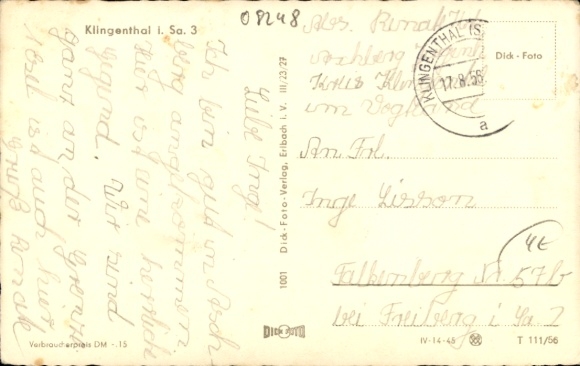 Klingenthal i. Sa. 3
08248
Liebe Inge!
Ich bin gut in Asch-
berg angekommen
hier ist eine herrliche
Gegend. Wir sind
ganz an der Grenze.
ist auch hier
Gruß Renate
Verbraucherpreis DM -.15
1001 Dick-Foto-Verlag, Erlbach i. V. III/23/29
DICK FOTO
Abs. Renate
Aschberg
Kreis
im Vogtland
KLINGENTHAL (S
17.8.56
a
Dick-Foto
An Frl.
Inge Lisson
4E
Falkenberg Nr. 57b
bei Freiberg i. Sa. 2
IV-14-45
T 111/56